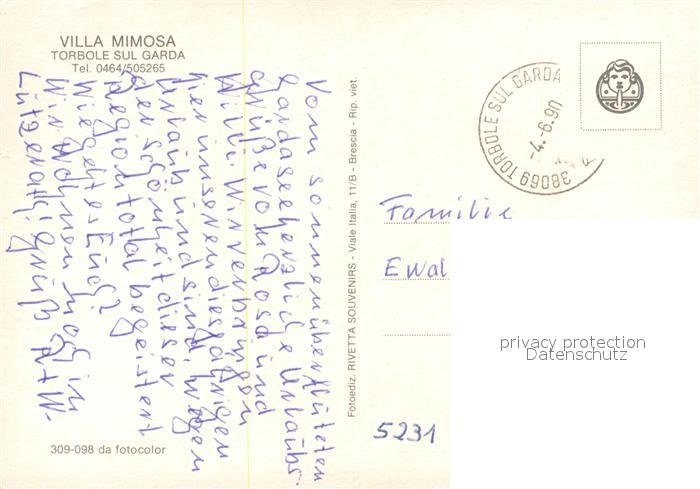 VILLA MIMOSA
TORBOLE SUL GARDA
Tel. 0464/505265
Vom sonnenüberfluteten
Gardasee herzliche Urlaubs-
grüße von Rosa und
Willi. Wir verbringen
hier unseren diesjährigen
Urlaub und sind wegen
der schönheit dieser
Region total begeistert
Wie geht es Euch?
Wir wohnen noch in
Lützerath! Gruß R+W.
309-098 da fotocolor
Fotoediz. RIVETTA SOUVENIRS - Viale Italia, 11/B - Brescia - Rip. viet.
38069 TORBOLE SUL GARDA
-4.-6.90
Familie
Ewal
5231
privacy protection
Datenschutz